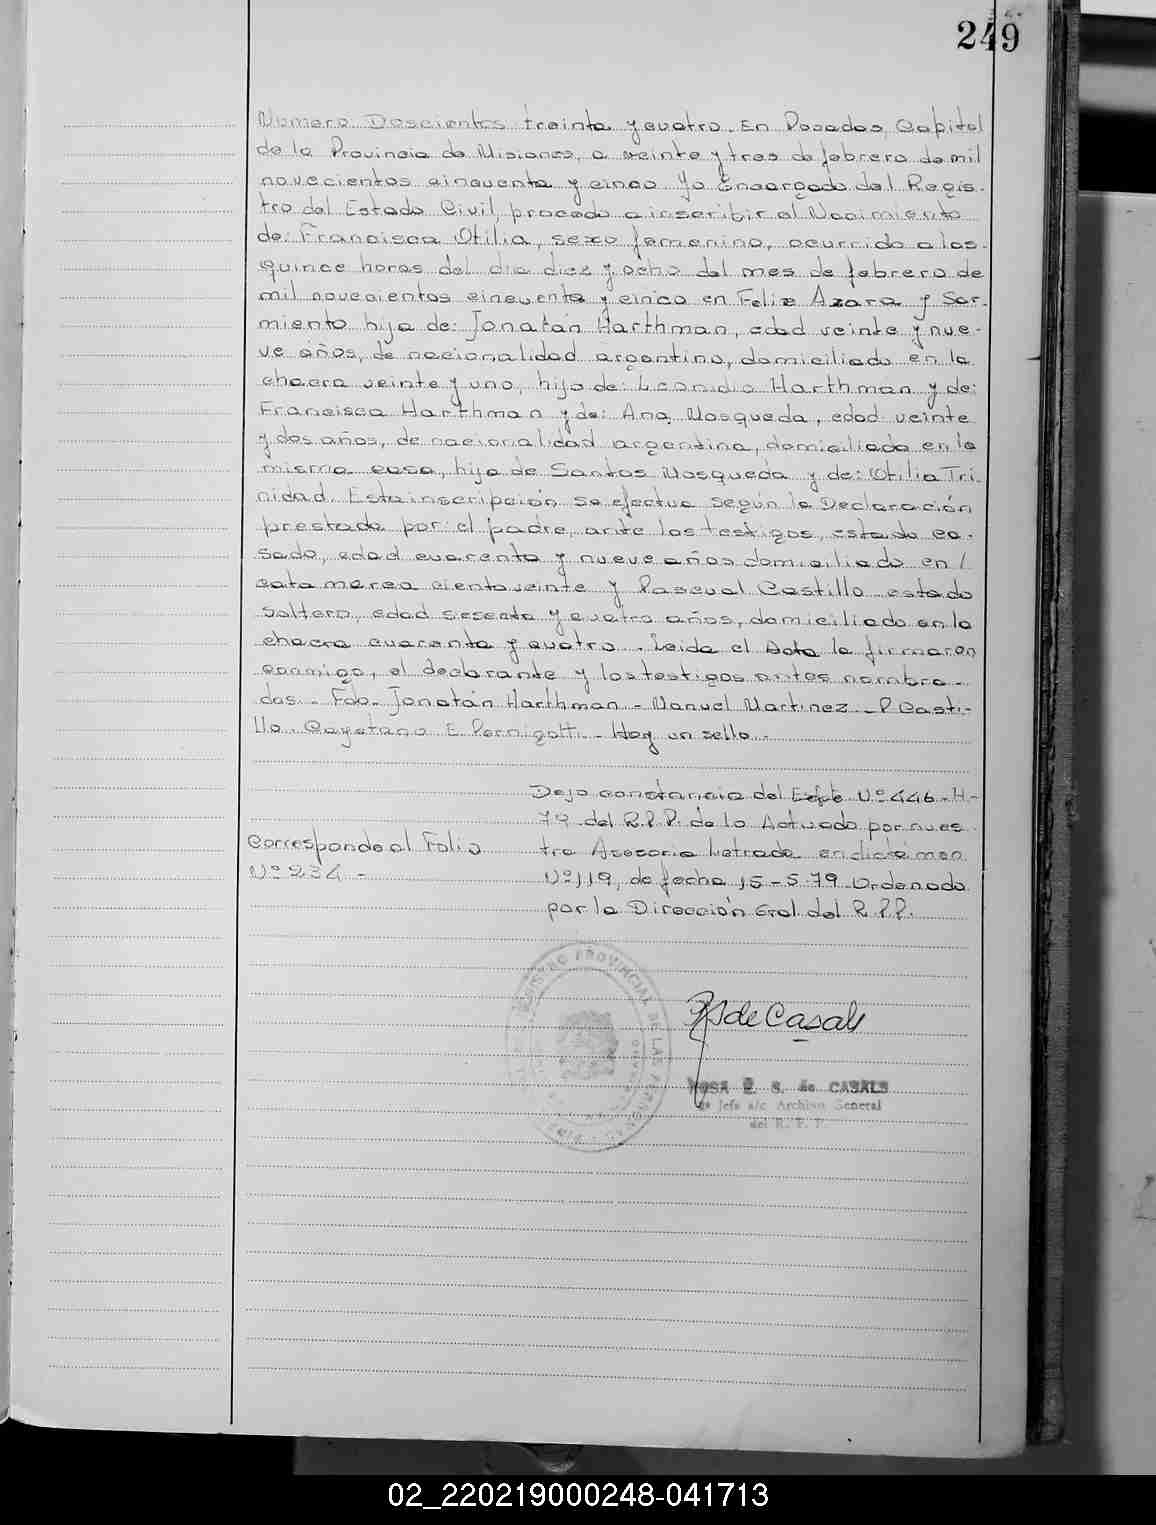 249
Numero Doscientos treinta y cuatro. En Posadas, Capital
de la Provincia de Misiones, a veinte y tres de febrero de mil
novecientos cincuenta y cinco Yo Encargado del Regis-
tro del Estado Civil, procedo a inscribir el Nacimiento
de: Francisca Otilia, sexo femenino, ocurrido a las
quince horas del dia diez y ocho del mes de febrero de
mil novecientos cincuenta y cinco en Felix Azara y Sar-
miento hija de: Jonatán Harthman, edad veinte y nue-
ve años, de nacionalidad argentino, domiciliado en la
chacra veinte y uno, hijo de: Leonidio Harthman y de:
Francisca Harthman y de: Ana Mosqueda, edad veinte
y dos años, de nacionalidad argentina, domiciliada en la
misma casa, hija de Santos Mosqueda y de: Otilia Tri-
nidad. Esta inscripción se efectua según la Declaración
prestada por: el padre, ante los testigos, estado ca-
sado, edad cuarenta y nueve años domiciliado en
Catamarca ciento veinte y Pascual Castillo estado
soltero, edad sesenta y cuatro años, domiciliado en la
chacra cuarenta y cuatro. Leida el Acta la firmaron
conmigo, el declarante y los testigos antes nombra-
dos. Fdo. Jonatán Harthman - Manuel Martinez - P Casti-
llo. Cayetano E. Pernigotti. - Hay un sello.
Dejo constancia del Expte Nº 446-H-
79 del R.P.P. de lo Actuado por nues
Corresponde al Folio
Nº 234 -
tra Asesoria Letrada en dictamen
Nº 119, de fecha 15-5-79 Ordenado
por la Dirección Gral. del R.P.P.
REGISTRO PROVINCIAL DE LAS PERSONAS
RS de Casals
ROSA E. S. de CASALS
Jefe a/c Archivo General
del R. P. P.
02_220219000248-041713